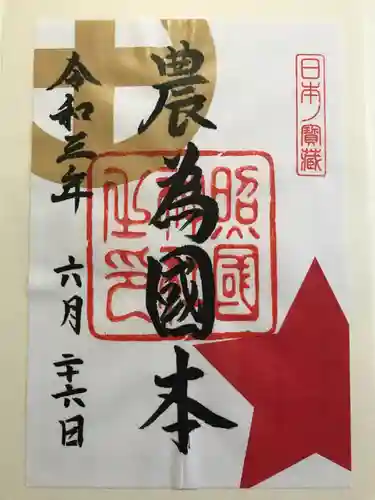 日本ノ寶藏
農為國本
照國
之印
令和三年 六月 二十六日